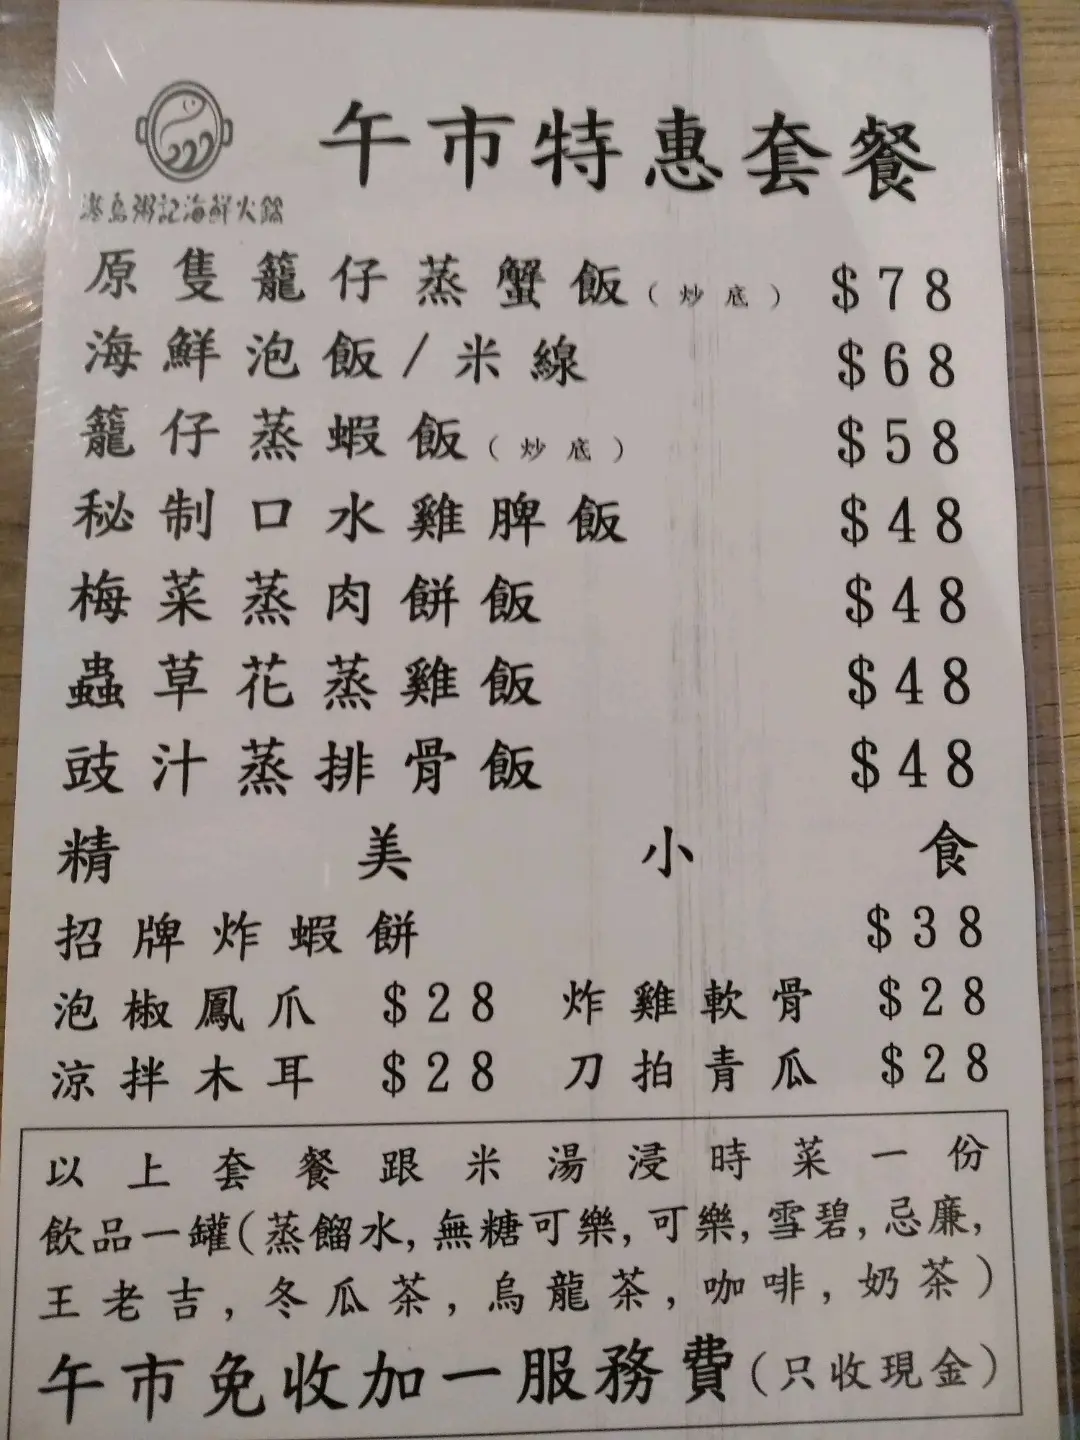 午市特惠套餐
港島粥記海鮮火鍋
原隻籠仔蒸蟹飯(炒底) $78
海鮮泡飯/米線 $68
籠仔蒸蝦飯(炒底) $58
秘制口水雞脾飯 $48
梅菜蒸肉餅飯 $48
蟲草花蒸雞飯 $48
豉汁蒸排骨飯 $48
精美小食
招牌炸蝦餅 $38
泡椒鳳爪 $28 炸雞軟骨 $28
涼拌木耳 $28 刀拍青瓜 $28
以上套餐跟米湯浸時菜一份
飲品一罐(蒸餾水,無糖可樂,可樂,雪碧,忌廉,
王老吉,冬瓜茶,烏龍茶,咖啡,奶茶)
午市免收加一服務費(只收現金)